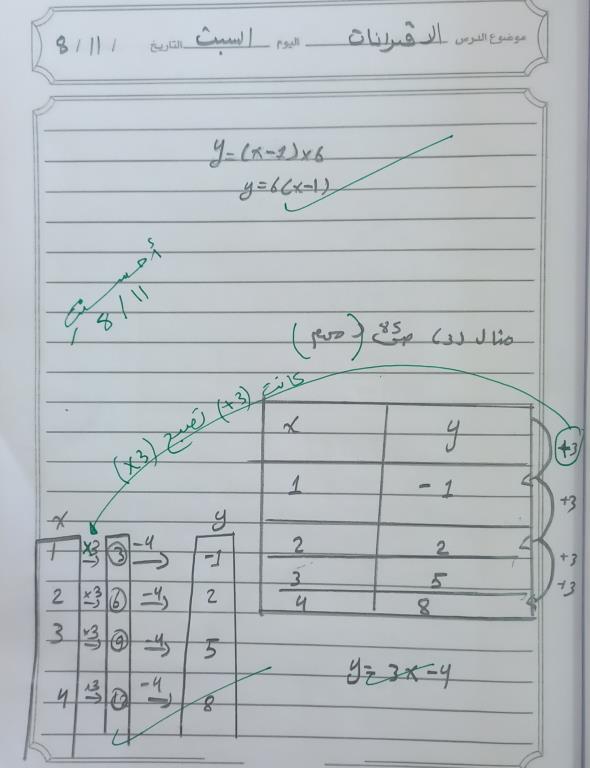 موضوع الدرس الاقترانات اليوم السبت التاريخ 8/11/
y=(x-1)x6
y=6(x-1)
أحسنت
8/11/
مثال (2) ص 85
كانت (+3) تصبح (x3)
x y
1 -1
2 2
3 5
4 8
+3
+3
+3
+3
x y
1 x3 → 3 -4 → -1
2 x3 → 6 -4 → 2
3 x3 → 9 -4 → 5
4 x3 → 12 -4 → 8
y=3x-4